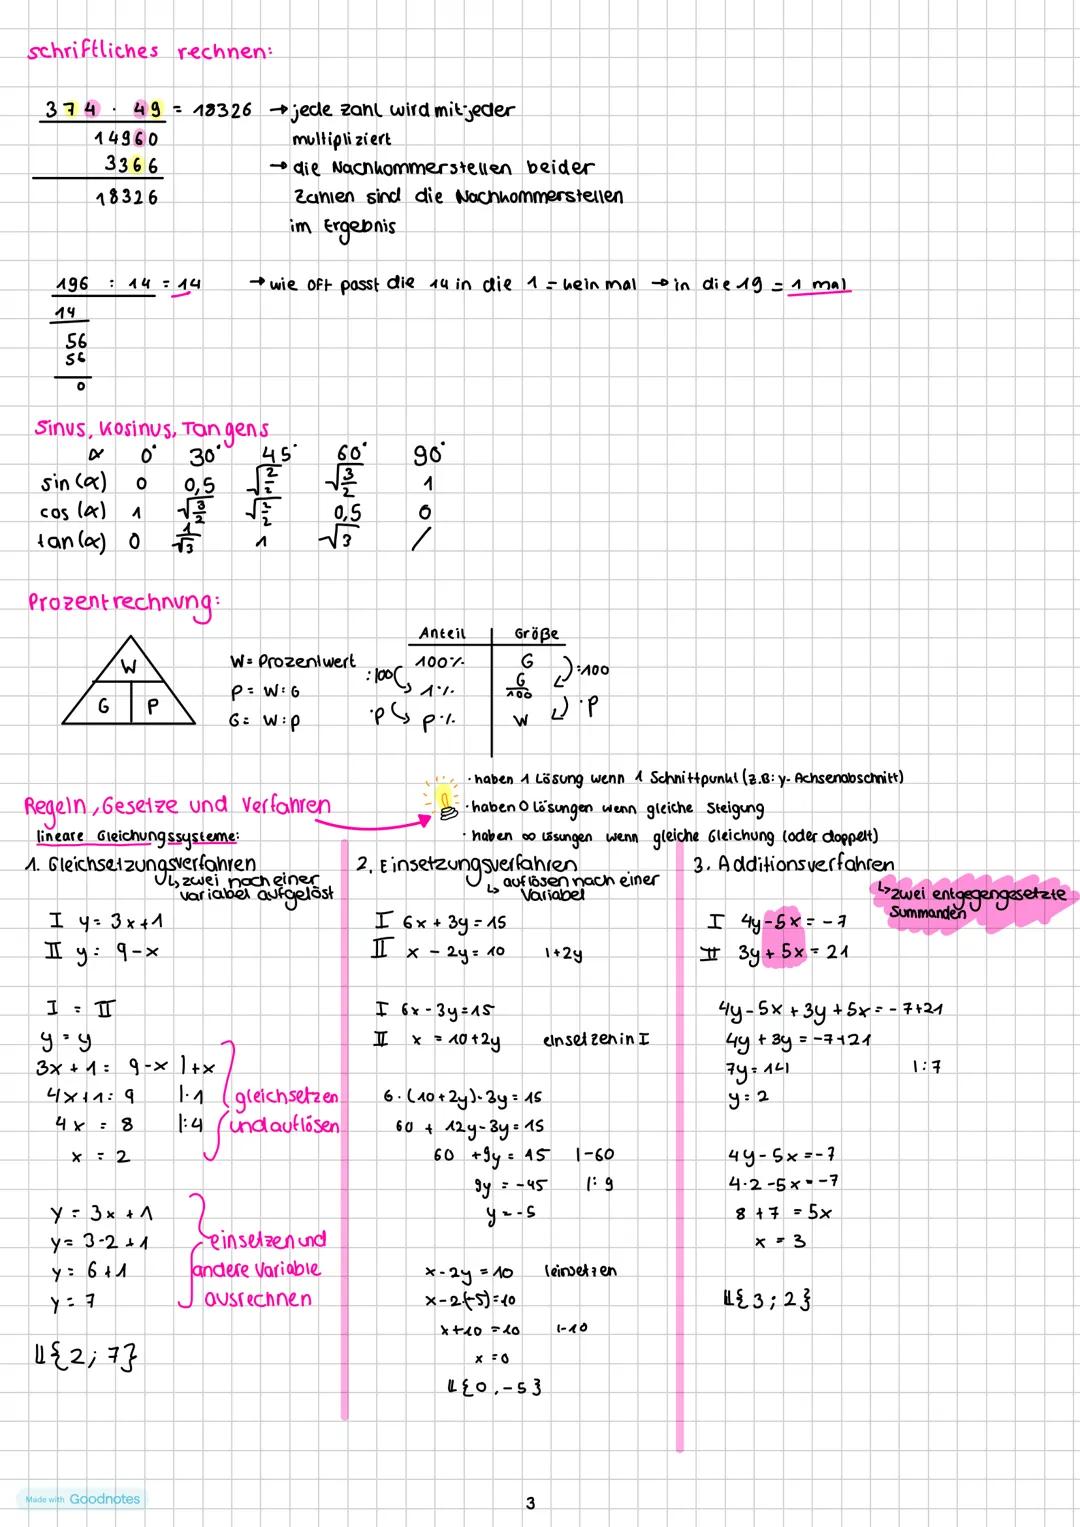 schriftliches rechnen:
374 · 49 = 18326 → jede zahl wird mit jeder
14960 multipliziert
3366 → die Nachkommerstellen beider
18326 Zahlen sind die Nachkommerstellen
im Ergebnis
196 : 14 = 14 → wie oft passt die 14 in die 1 = kein mal → in die 19 = 1 mal
14
56
56
0
Sinus, Kosinus, Tangens
α 0° 30° 45° 60° 90°
sin(α) 0 0,5 √2/2 √3/2 1
cos(α) 1 √3/2 √2/2 0,5 0
tan(α) 0 1/√3 1 √3 /
Prozentrechnung:
Anteil Größe
W W = Prozentwert :100 100% G :100
G P P = W:G 1% G/100
G = W:P ·P P% W ·P
· haben 1 Lösung wenn 1 Schnittpunkt (z.B: y-Achsenabschnitt)
Regeln, Gesetze und Verfahren · haben 0 lösungen wenn gleiche Steigung
lineare Gleichungssysteme: · haben ∞ lösungen wenn gleiche Gleichung (oder doppelt)
1. Gleichsetzungsverfahren
↳ zwei nach einer
variabel aufgelöst
I y = 3x+1
II y = 9-x
I = II
y = y
3x + 1 = 9-x |+x
4x+1 = 9 |-1 gleichsetzen
4x = 8 |:4 und auflösen
x = 2
y = 3x + 1
y = 3·2 + 1 einsetzen und
y = 6+1 andere Variable
y = 7 ausrechnen
𝕃{2; 7}
2. Einsetzungsverfahren
↳ auflösen nach einer
Variabel
I 6x + 3y = 15
II x - 2y = 10 |+2y
I 6x - 3y = 15
II x = 10+2y einsetzen in I
6·(10+2y)-3y = 15
60 + 12y-3y = 15
60 +9y = 15 |-60
9y = -45 |:9
y = -5
x-2y = 10 |einsetzen
x-2·(-5)=10
x+10 = 10 |-10
x = 0
𝕃{0,-5}
3. Additionsverfahren
↳ zwei entgegengesetzte
Summanden
I 4y-5x = -7
II 3y + 5x = 21
4y-5x + 3y + 5x = -7+21
4y + 3y = -7+21
7y = 14 |:7
y = 2
4y - 5x = -7
4·2 -5x = -7
8 + 7 = 5x
x = 3
𝕃{3; 2}
Made with Goodnotes
3